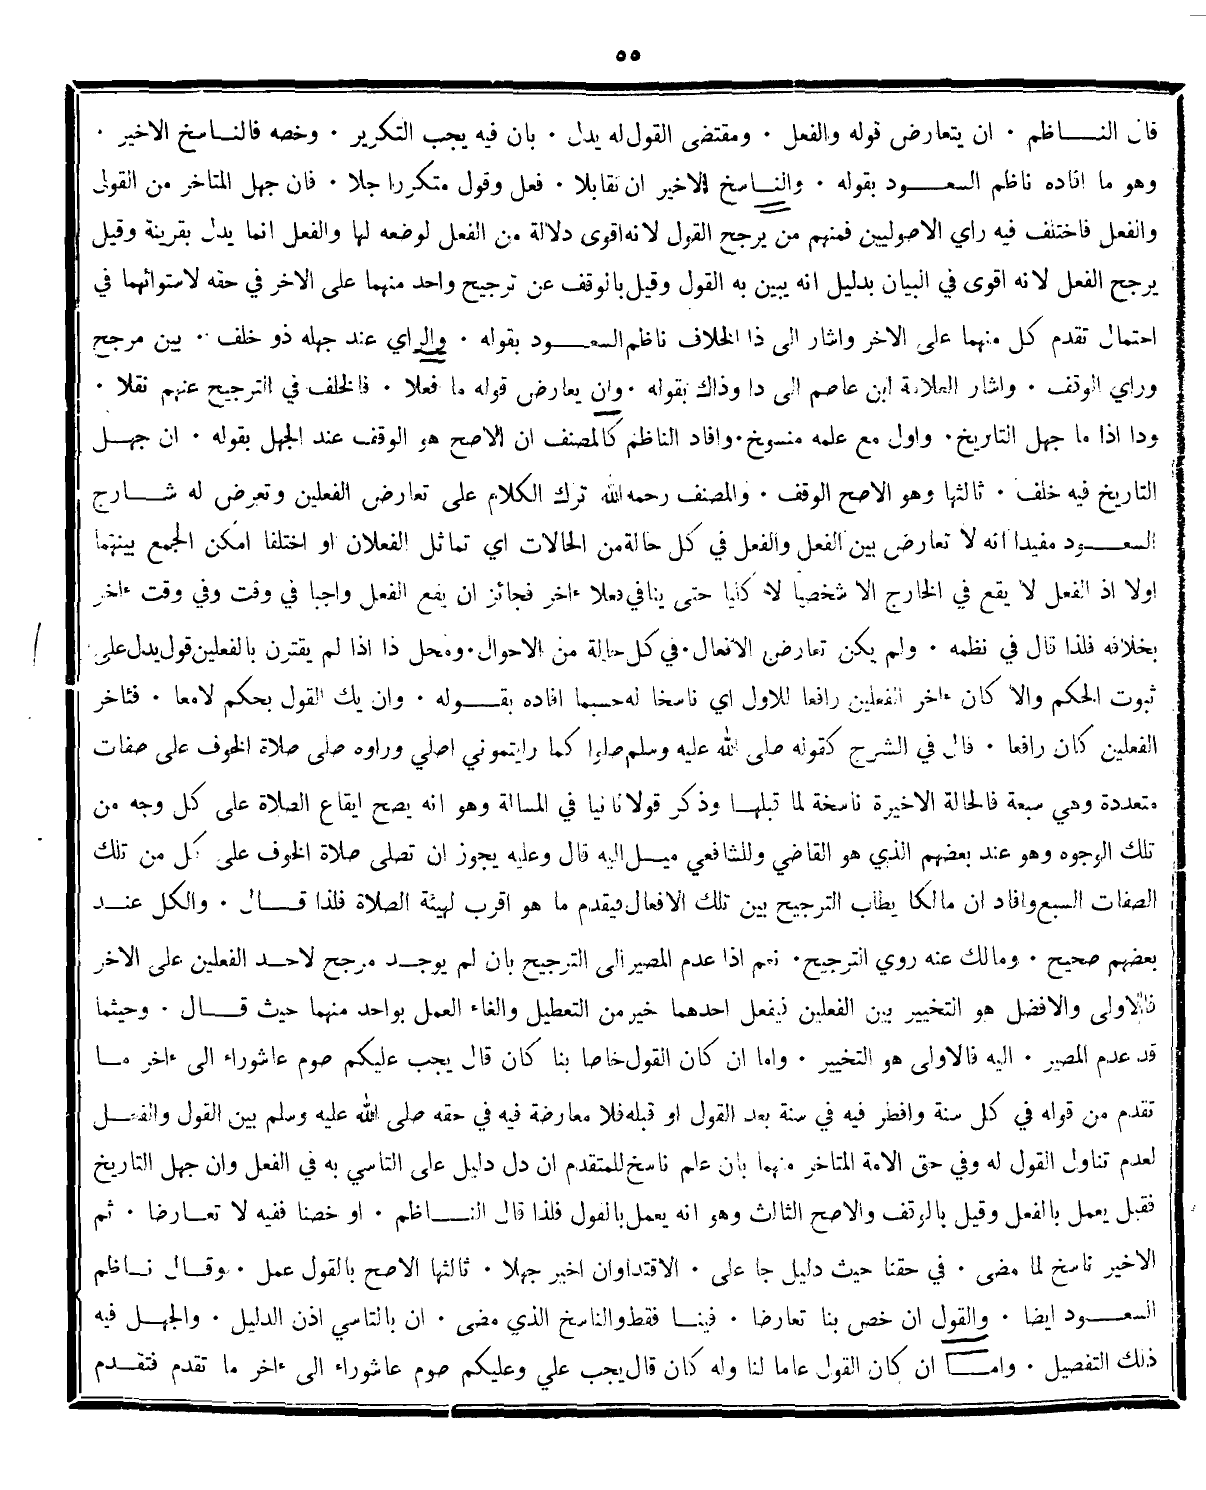 ٥٥
قال النـــاظم ٠ ان يتعارض قوله والفعل ٠ ومقتضى القول له يدل ٠ بان فيه يجب التكرير ٠ وخصه فالناسخ الاخير ٠
وهو ما افاده ناظم السعـــود بقوله ٠ والناسخ الاخير ان تقابلا ٠ فعل وقول متكررا جلا ٠ فان جهل المتاخر من القول
والفعل فاختلف فيه راي الاصوليين فمنهم من يرجح القول لانه اقوى دلالة من الفعل لوضعه لها والفعل انما يدل بقرينة وقيل
يرجح الفعل لانه اقوى في البيان بدليل انه يبين به القول وقيل بالوقف عن ترجيح واحد منهما على الاخر في حقه لاستوائهما في
احتمال تقدم كل منهما على الاخر واشار الى ذا الخلاف ناظم السعـــود بقوله ٠ والراي عند جهله ذو خلف ٠ بين مرجح
وراي الوقف ٠ واشار العلامة ابن عاصم الى ذا وذاك بقوله ٠ وان يعارض قوله ما فعلا ٠ فالخلف في الترجيح عنهم نقلا ٠
وذا اذا ما جهل التاريخ ٠ واول مع علمه منسوخ ٠ وافاد الناظم كالمصنف ان الاصح هو الوقف عند الجهل بقوله ٠ ان جهـــل
التاريخ فيه خلف ٠ ثالثها وهو الاصح الوقف ٠ والمصنف رحمه الله ترك الكلام على تعارض الفعلين وتعرض له شـــارح
السعـــود مفيدا انه لا تعارض بين الفعل والفعل في كل حالة من الحالات اي تماثل الفعلان او اختلفا امكن الجمع بينهما
اولا اذ الفعل لا يقع في الخارج الا شخصيا لا كليا حتى ينافي فعلا ءاخر فجائز ان يقع الفعل واجبا في وقت وفي وقت ءاخر
بخلافه فلذا قال في نظمه ٠ ولم يكن تعارض الافعال ٠ في كل حالة من الاحوال ٠ ومحل ذا اذا لم يقترن بالفعلين قول يدل على
ثبوت الحكم والا كان ءاخر الفعلين رافعا للاول اي ناسخا له حسبما افاده بقـــوله ٠ وان يك القول بحكم لامعا ٠ فئاخر
الفعلين كان رافعا ٠ قال في الشرح كقوله صلى الله عليه وسلم صلوا كما رايتموني اصلي وراوه صلى صلاة الخوف على صفات
متعددة وهي سبعة فالحالة الاخيرة ناسخة لما قبلهـــا وذكر قولا ثانيا في المسالة وهو انه يصح ايقاع الصلاة على كل وجه من
تلك الوجوه وهو عند بعضهم الذي هو القاضي وللشافعي ميـــل اليه قال وعليه يجوز ان تصلى صلاة الخوف على كل من تلك
الصفات السبع وافاد ان مالكا يطلب الترجيح بين تلك الافعال فيقدم ما هو اقرب لهيئة الصلاة فلذا قـــال ٠ والكل عنـــد
بعضهم صحيح ٠ ومالك عنه روي الترجيح ٠ نعم اذا عدم المصير الى الترجيح بان لم يوجـــد مرجح لاحـــد الفعلين على الاخر
فالاولى والافضل هو التخيير بين الفعلين ليفعل احدهما خير من التعطيل والغاء العمل بواحد منهما حيث قـــال ٠ وحيثما
قد عدم المصير ٠ اليه فالاولى هو التخيير ٠ واما ان كان القول خاصا بنا كان قال يجب عليكم صوم عاشوراء الى ءاخر مـــا
تقدم من قوله في كل سنة وافطر فيه في سنة بعد القول او قبله فلا معارضة فيه في حقه صلى الله عليه وسلم بين القول والفعـــل
لعدم تناول القول له وفي حق الامة المتاخر منهما بان علم ناسخ للمتقدم ان دل دليل على التاسي به في الفعل وان جهل التاريخ
فقيل يعمل بالفعل وقيل بالوقف والاصح الثالث وهو انه يعمل بالقول فلذا قال النـــاظم ٠ او خصنا ففيه لا تعـــارضا ٠ ثم
الاخير ناسخ لما مضى ٠ في حقنا حيث دليل جا على ٠ الاقتدا وان اخير جهلا ٠ ثالثها الاصح بالقول عمل ٠ وقـــال نـــاظم
السعـــود ايضا ٠ والقول ان خص بنا تعارضا ٠ فينـــا فقط والناسخ الذي مضى ٠ ان بالتاسي اذن الدليل ٠ والجهـــل فيه
ذلك التفصيل ٠ وامـــا ان كان القول عاما لنا وله كان قال يجب علي وعليكم صوم عاشوراء الى ءاخر ما تقدم فتقـــدم